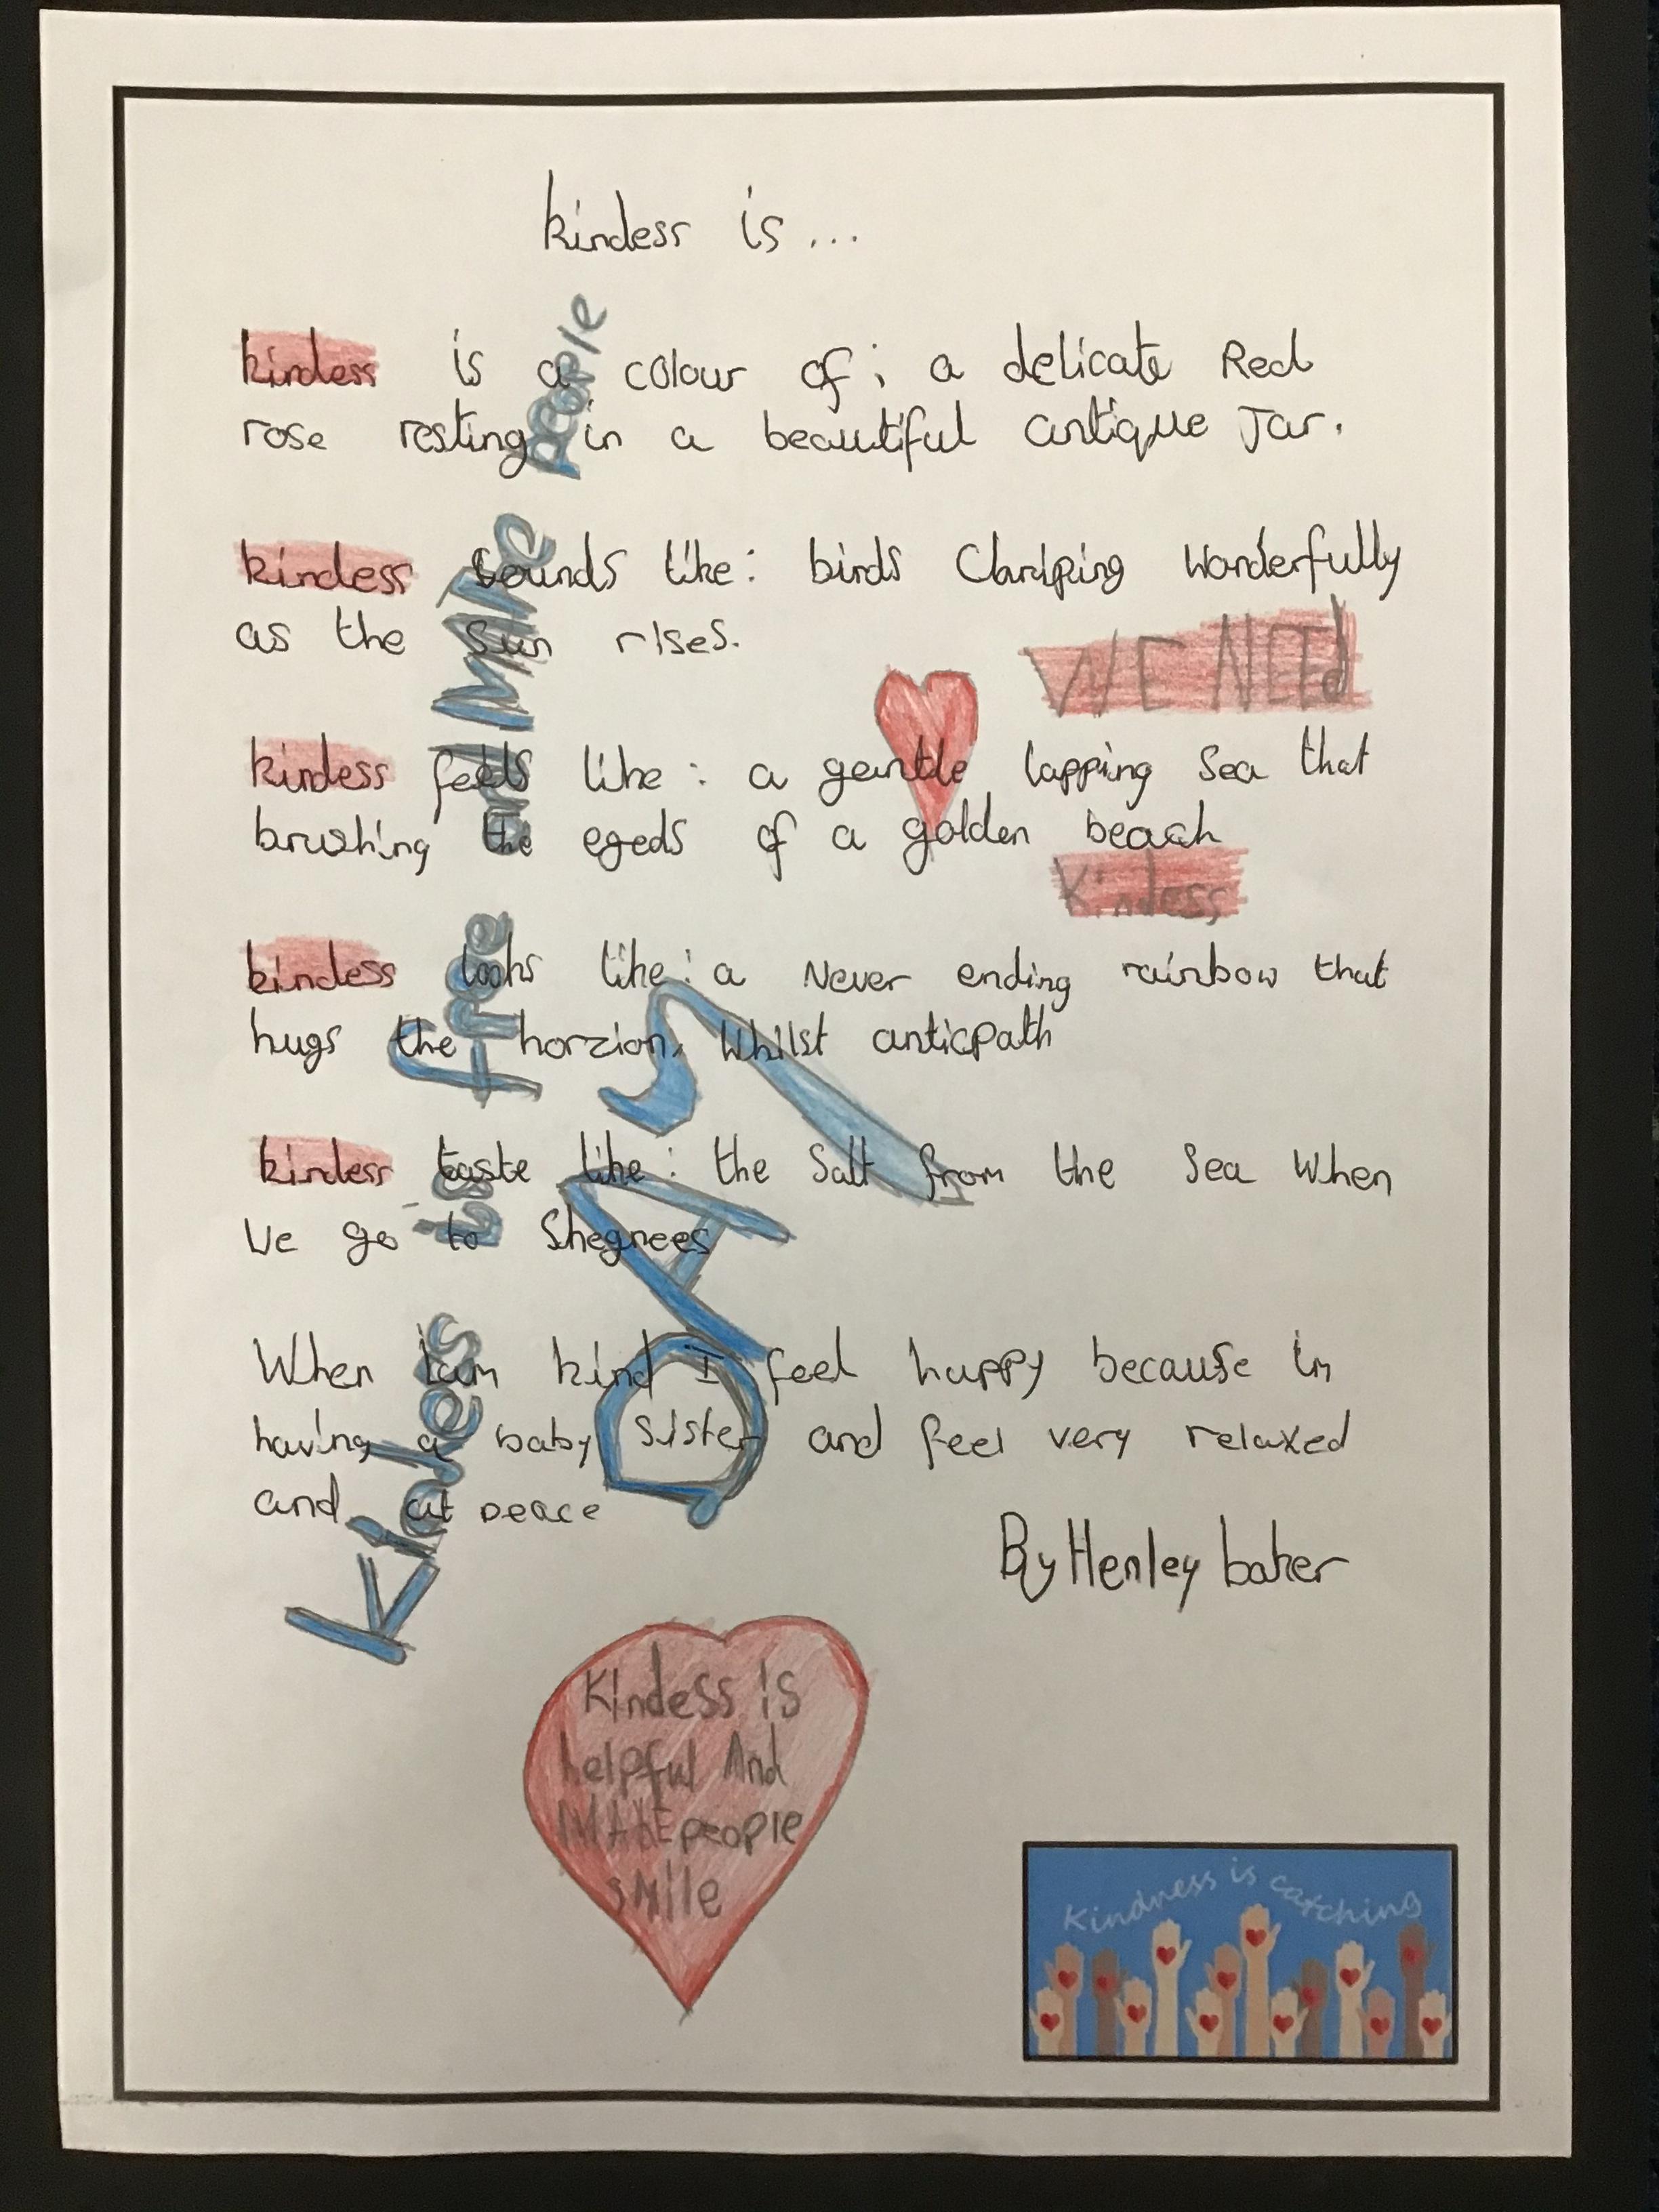 kindess is...
kindess is a colour of; a delicate Red
rose resting in a beautiful antique Jar.
kindess sounds like: birds Chriping Wonderfully
as the sun rises.
WE NEEd
kindess feels like: a gentle lapping sea that
brushing the egeds of a golden beach
Kindess
kindess looks like: a Never ending rainbow that
hugs the horzion, Whilst anticpath
kindess taste like: the Salt from the Sea When
We go to Shegnees
When Iam kind I feel happy because im
having a baby sister and feel very relaxed
and at peace
By Henley baker
Kindess is free and MAke people
DAy
Kindess is
helpful And
MAkE people
smile
Kindness is catching